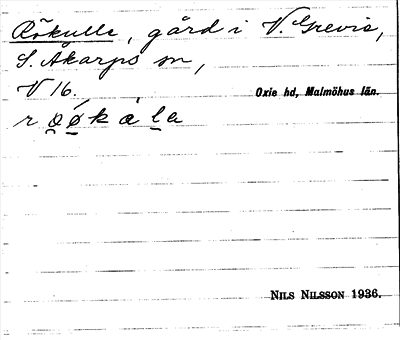 Rökulle, gård i V. Grevie,
S. Åkarps sn,
V 16. Oxie hd, Malmöhus län.
NILS NILSSON 1936.